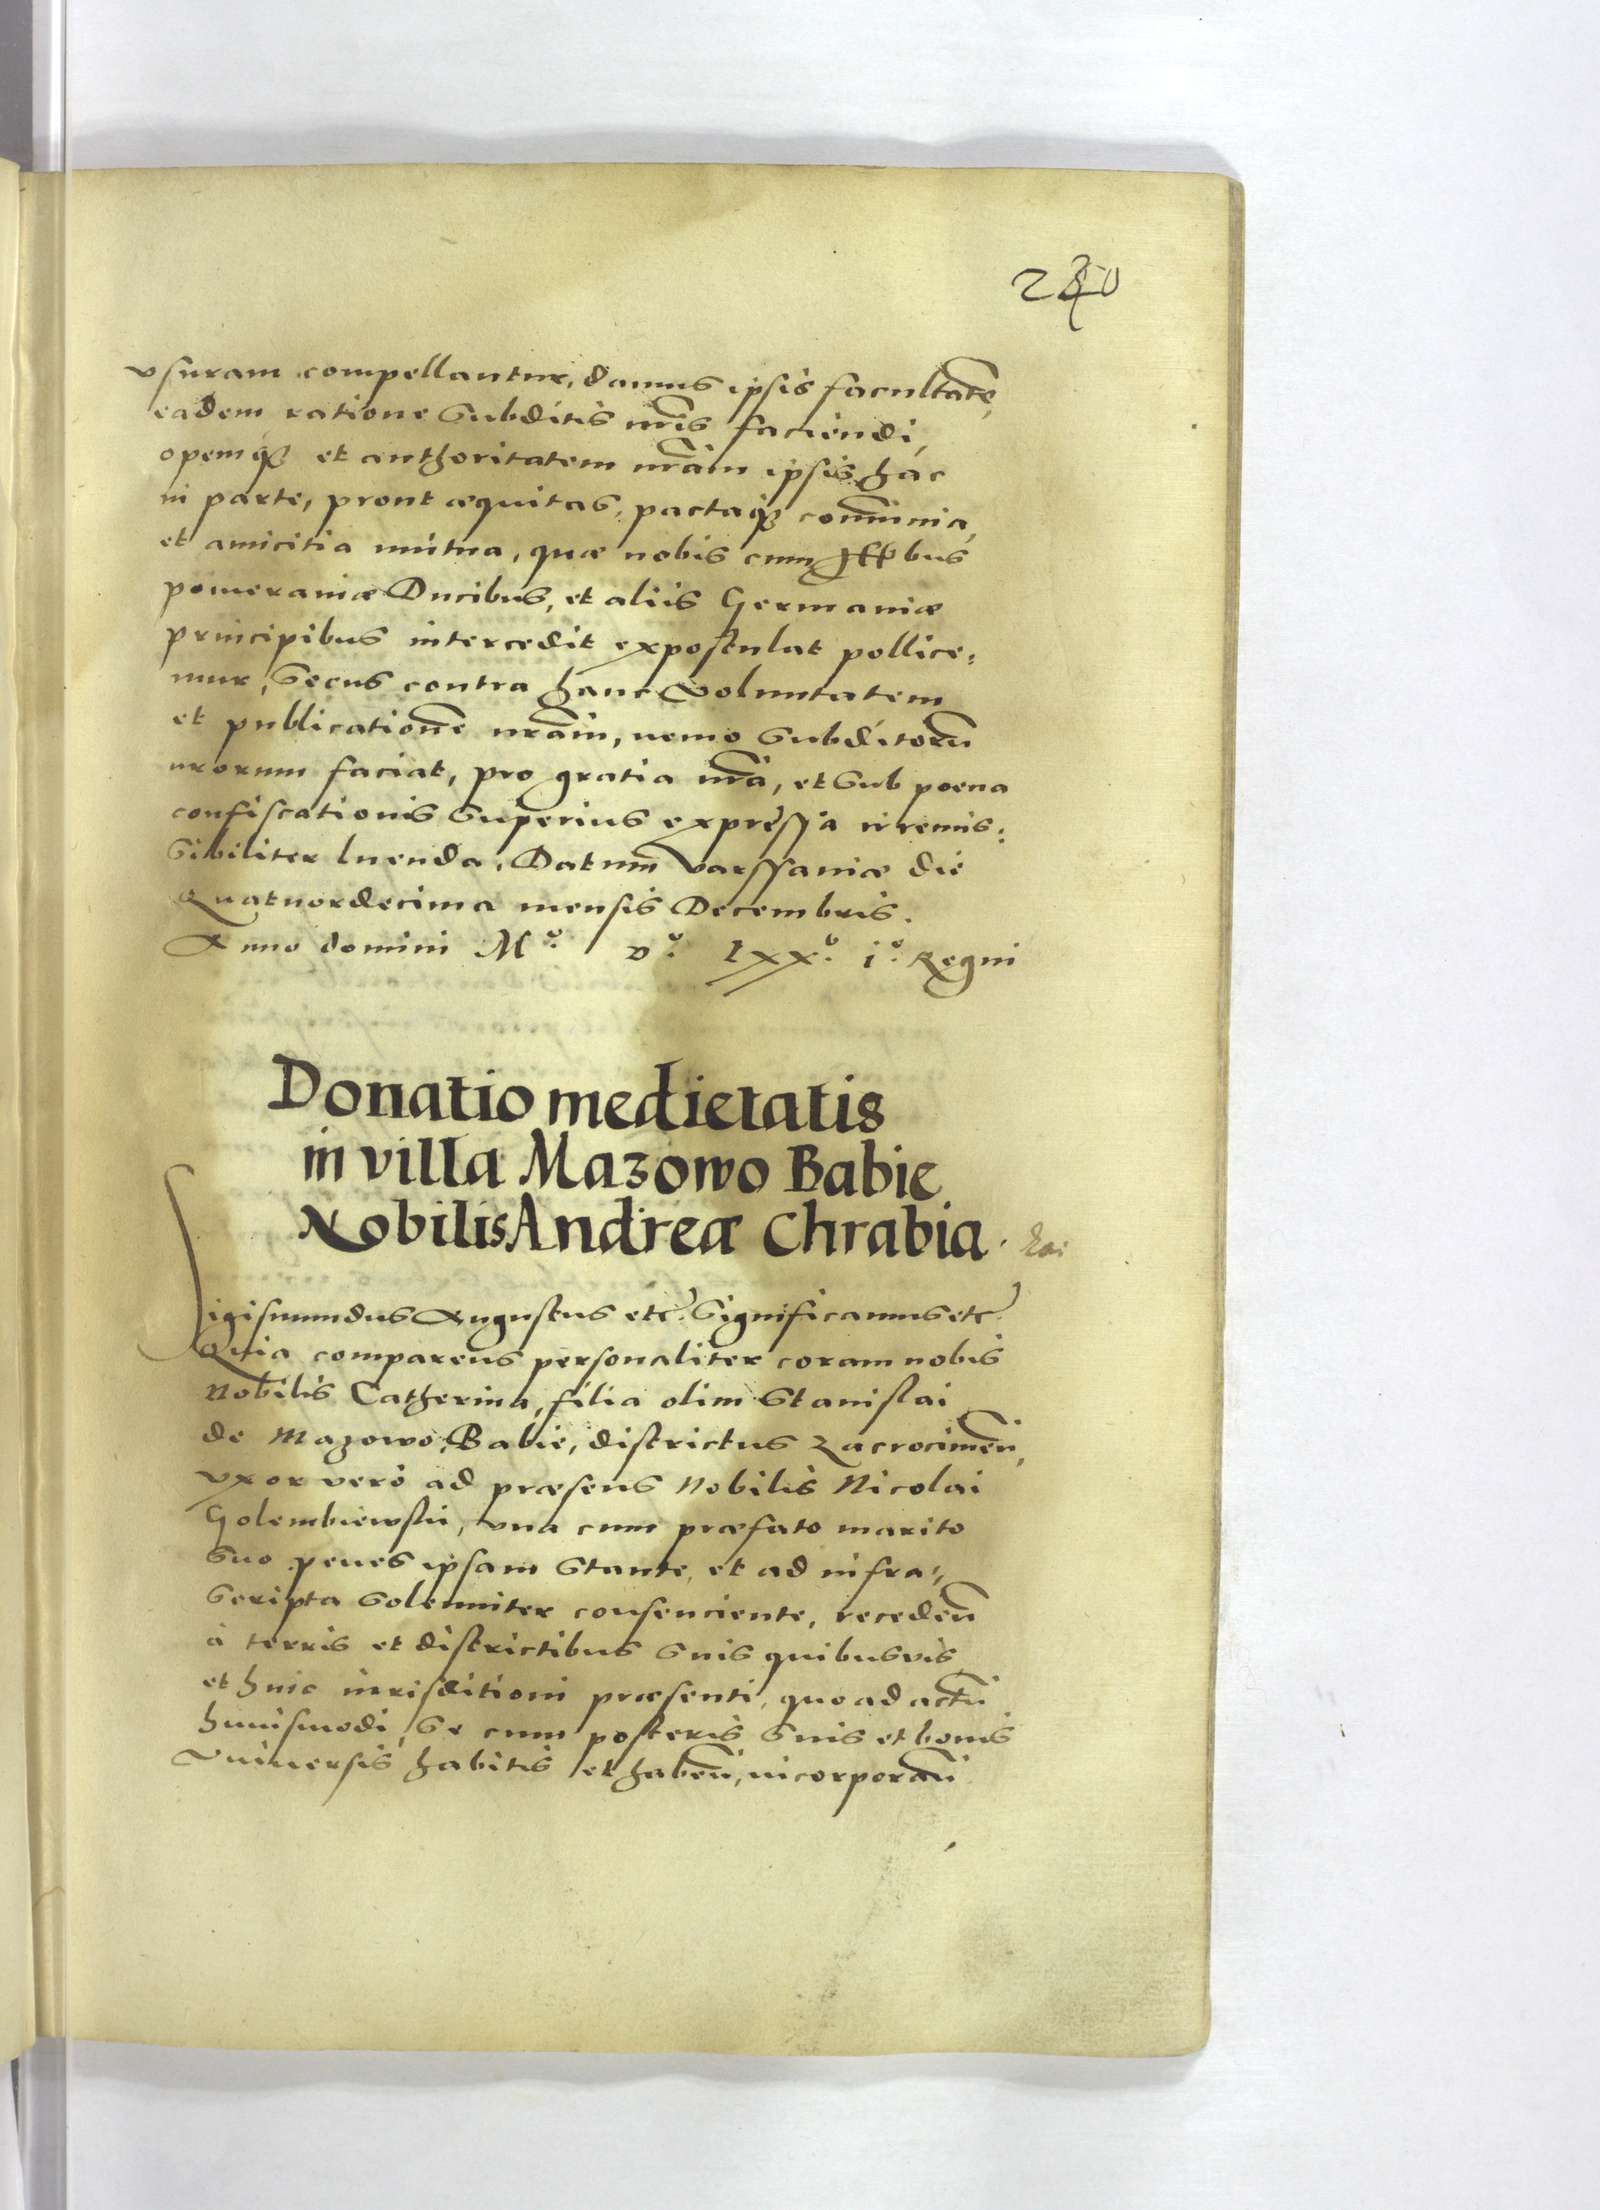 vsuram compellantur, damus ipsis facultatē,
eadem ratione Subditis nr̄is faciendi,
opemq₃ et authoritatem nr̄am ipsis hac
in parte, prout æquitas, pactaq₃ com̄unia,
et amicitia mutua, quæ nobis cum Illr̄bus
pomeraniæ Ducibus, et aliis Germaniæ
principibus intercedit expostulat pollice:
mur, Secus contra hanc Voluntatem
et publicationē nr̄am, nemo Subditorū
nrorum faciat, pro gratia nr̄a, et Sub poena
confiscationis Superius expressa irremis:
Sibiliter luenda. Datum̄ Varssaviæ die
Quatuordecima mensis Decembris.
Anno domini Mº. vº. lxxº. iº. Regni
Donatio medietatis
in villa Mazowo Babie
Nobilis Andreæ Chrabia.
Sigismundus Augustus etc. Significamus etc.
Quia comparens personaliter coram nobis
Nobilis Catherina, filia olim Stanislai
de Mazowo, Babie, districtus Zacrocimen̄,
vxor verò ad præsens Nobilis Nicolai
Golembiewskii, vna cum præfato marito
Suo penes ipsam Stante, et ad infra:,
Scripta Solenniter consenciente, receden̄
à terris et districtibus Suis quibusvis
et huic iurisditioni præsenti, quo ad actū
huiusmodi, Se cum posteris Suis et bonis
Vniuersis habitis et haben̄, incorporan̄